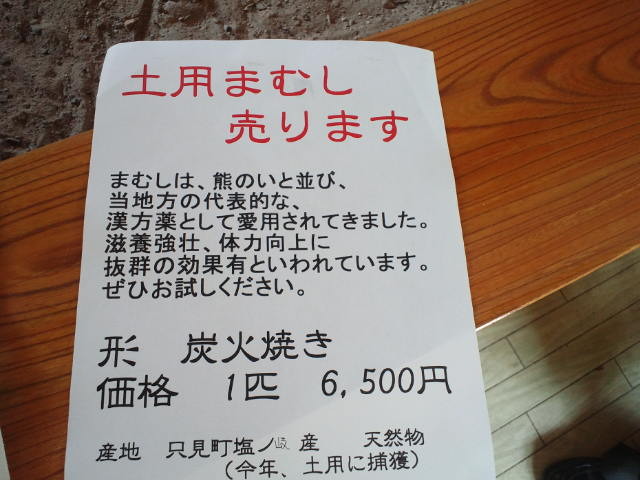 土用まむし
売ります
まむしは、熊のいと並び、
当地方の代表的な、
漢方薬として愛用されてきました。
滋養強壮、体力向上に
抜群の効果有といわれています。
ぜひお試しください。
形　炭火焼き
価格　1匹　6,500円
産地　只見町塩ノ岐産　天然物
（今年、土用に捕獲）